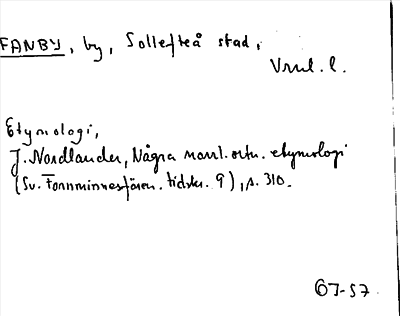 FANBY, by, Sollefteå stad,
Vrml. l.
Etymologi,
J. Nordlander, Några norrl. ortn. etymologi
(Sv. Fornminnesfören. tidskr. 9), s. 310.
GJ-57